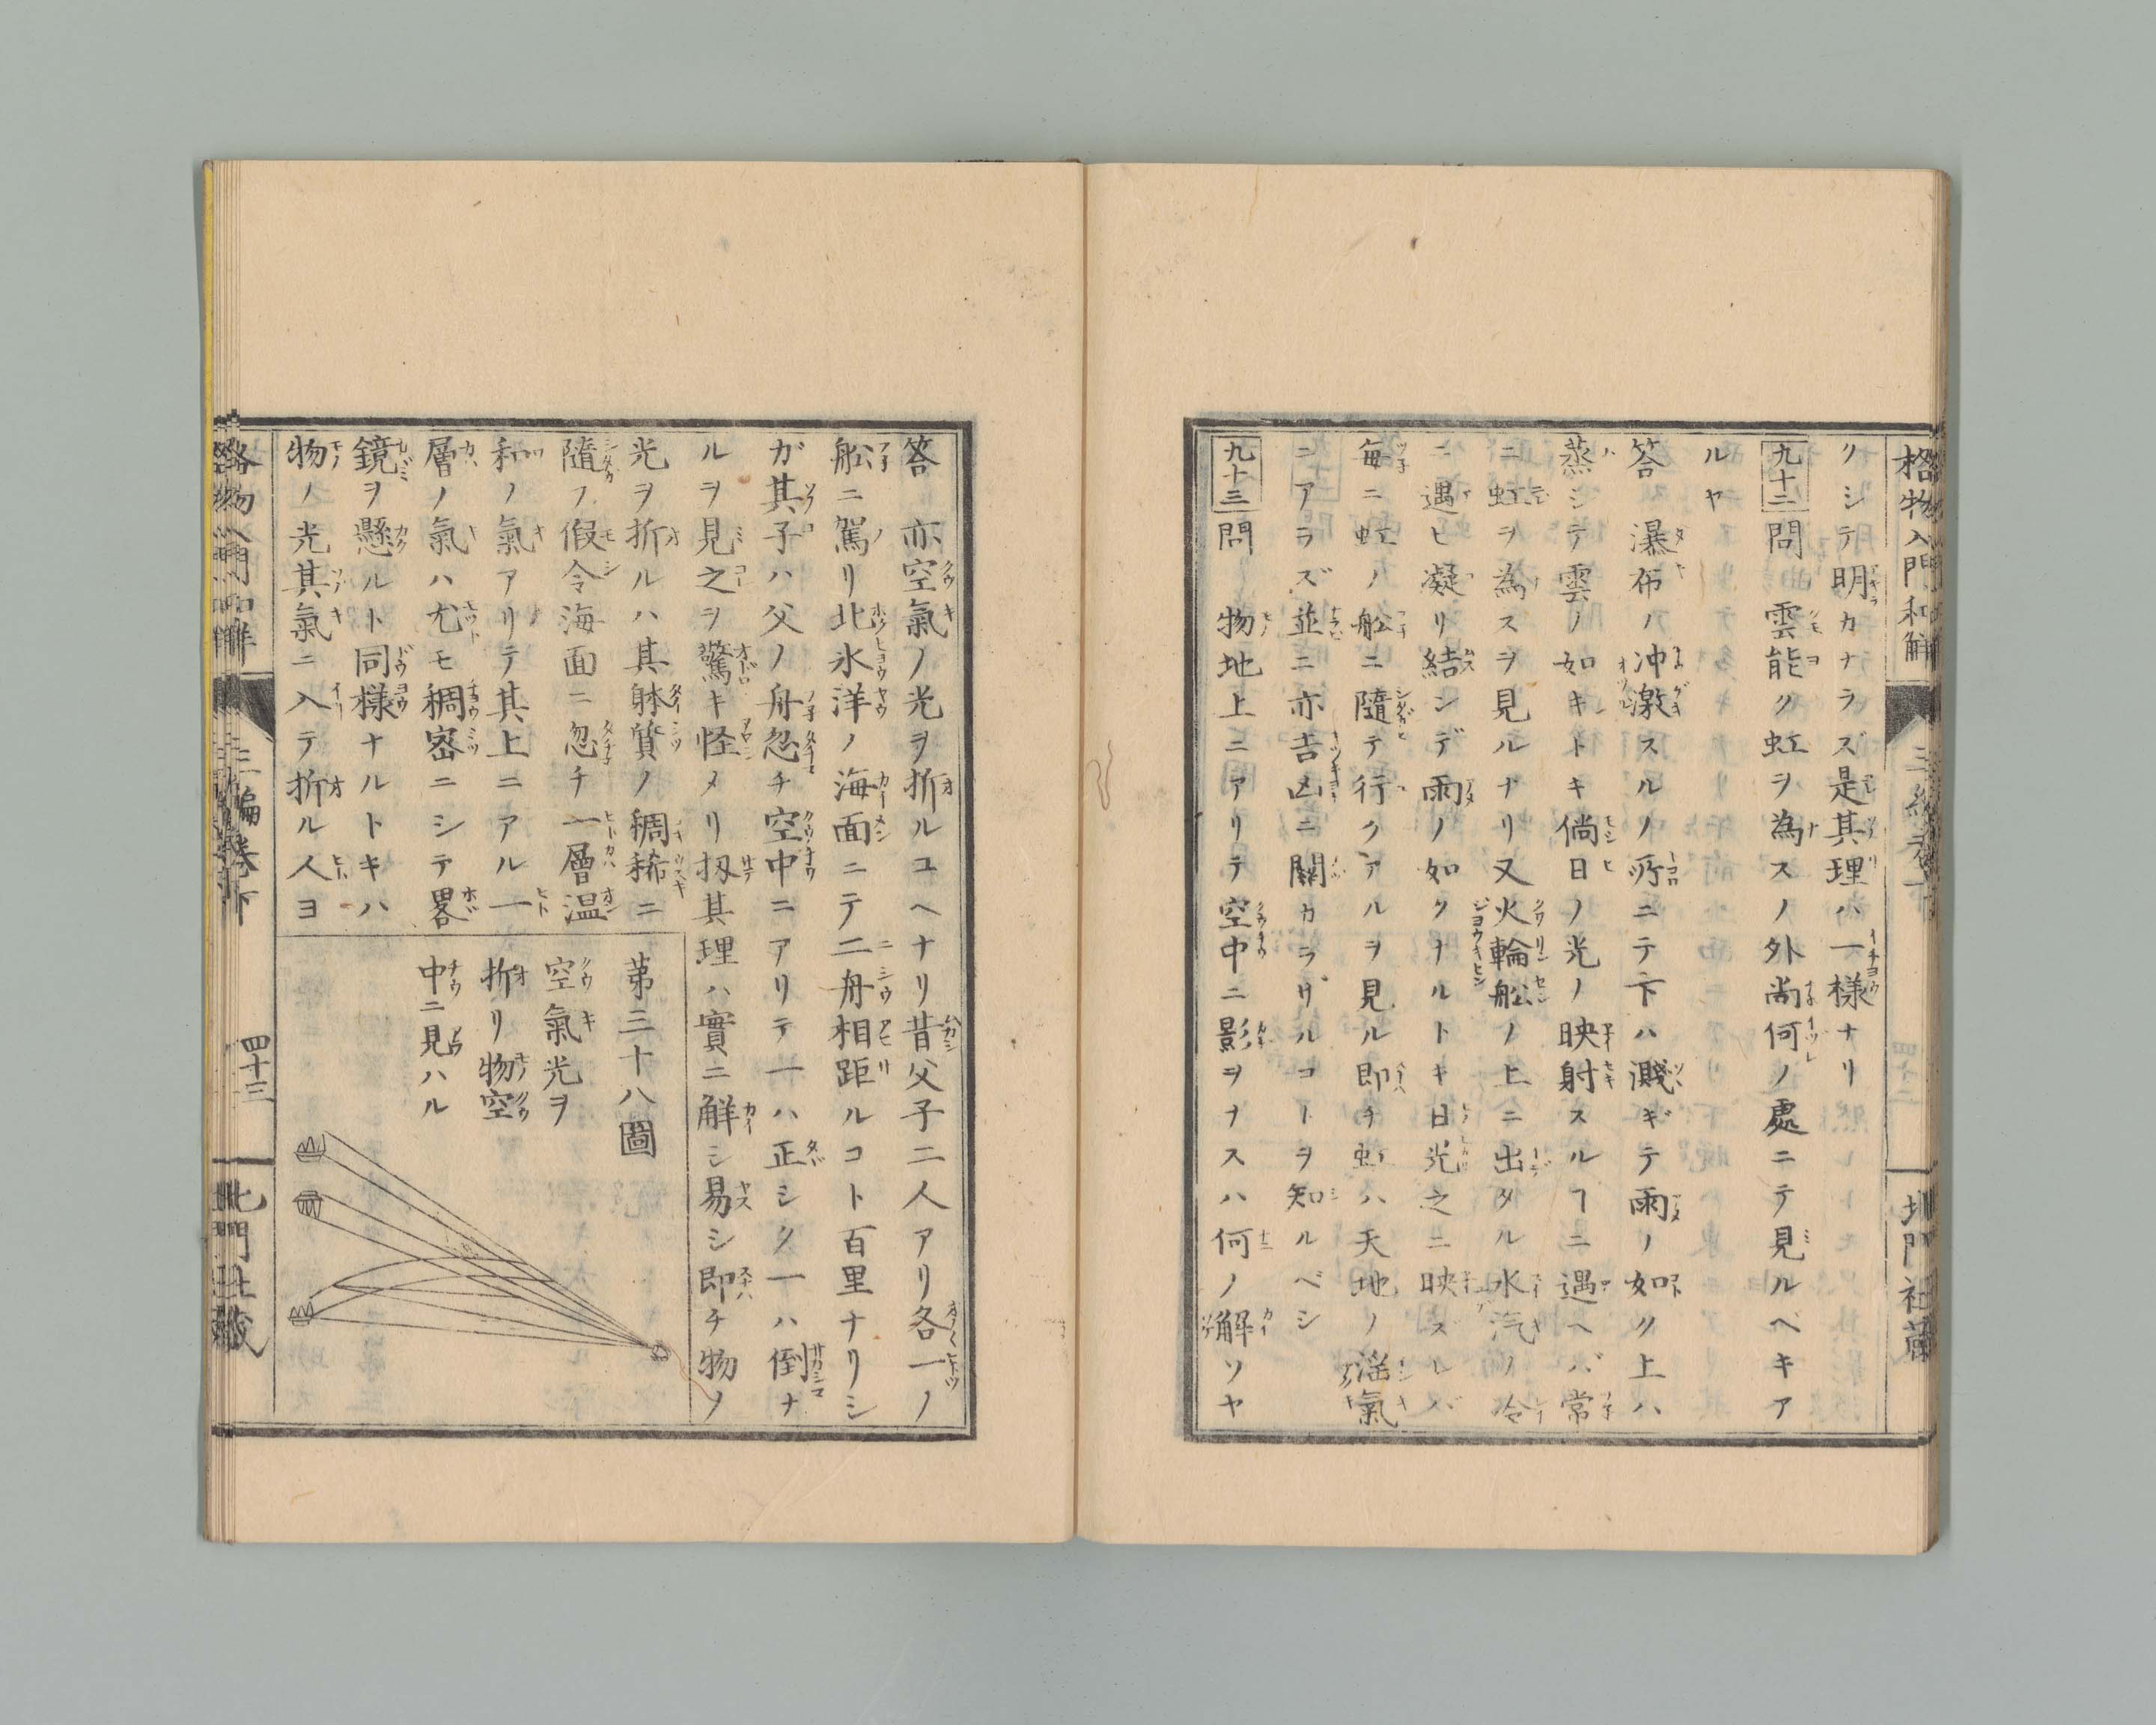 格物入門和解
三編卷下
北門社藏
クシテ明カナラズ是其理ハ一様ナリ
九十二 問 雲能ク虹ヲ為スノ外尚何ノ處ニテ見ルベキア
ルヤ
答 瀑布ノ冲激スルノ所ニテ下ハ濺ギテ雨ノ如ク上ハ
蒸シテ雲ノ如キトキ倘日ノ光ノ映射スルヿニ遇ヘバ常
ニ虹ヲ為スヲ見ルナリ又火輪舩ノ上ニ出タル水汽ノ冷
ニ遇ヒ凝リ結ンデ雨ノ如クナルトキ日光之ニ映ズレバ
毎ニ虹ノ舩ニ隨テ行クアルヲ見ル即チ虹ハ天地ノ滛氣
ニアラズ並ニ亦吉凶ニ關カラザルコトヲ知ルベシ
九十三 問 物地上ニアリテ空中ニ影ヲナスハ何ノ解ソヤ
答 亦空氣ノ光ヲ折ルユヘナリ昔父子二人アリ各一ノ
舩ニ駕リ北氷洋ノ海面ニテ二舟相距ルコト百里ナリシ
ガ其子ハ父ノ舟忽チ空中ニアリテ一ハ正シク一ハ倒ナ
ルヲ見之ヲ驚キ怪メリ扨其理ハ實ニ解シ易シ即チ物ノ
光ヲ折ルハ其躰質ノ稠稀ニ
隨フ假令海面ニ忽チ一層温
和ノ氣アリテ其上ニアル一
層ノ氣ハ尤モ稠密ニシテ畧
鏡ヲ懸ルト同様ナルトキハ
物ノ光其氣ニ入テ折ル人ヨ
第三十八圖
空氣光ヲ
折リ物空
中ニ見ハル
格物入門和解
三編卷下
四十三
北門社藏